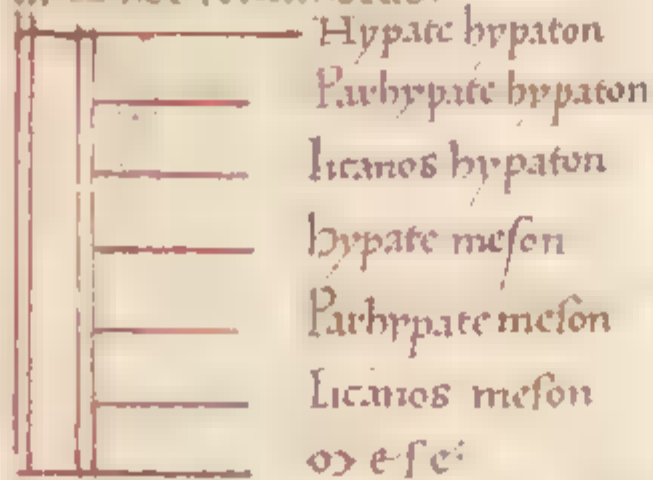 Hypate hypaton
Parhypate hypaton
licanos hypaton
hypate meſon
Parhypate meſon
Licanos meſon